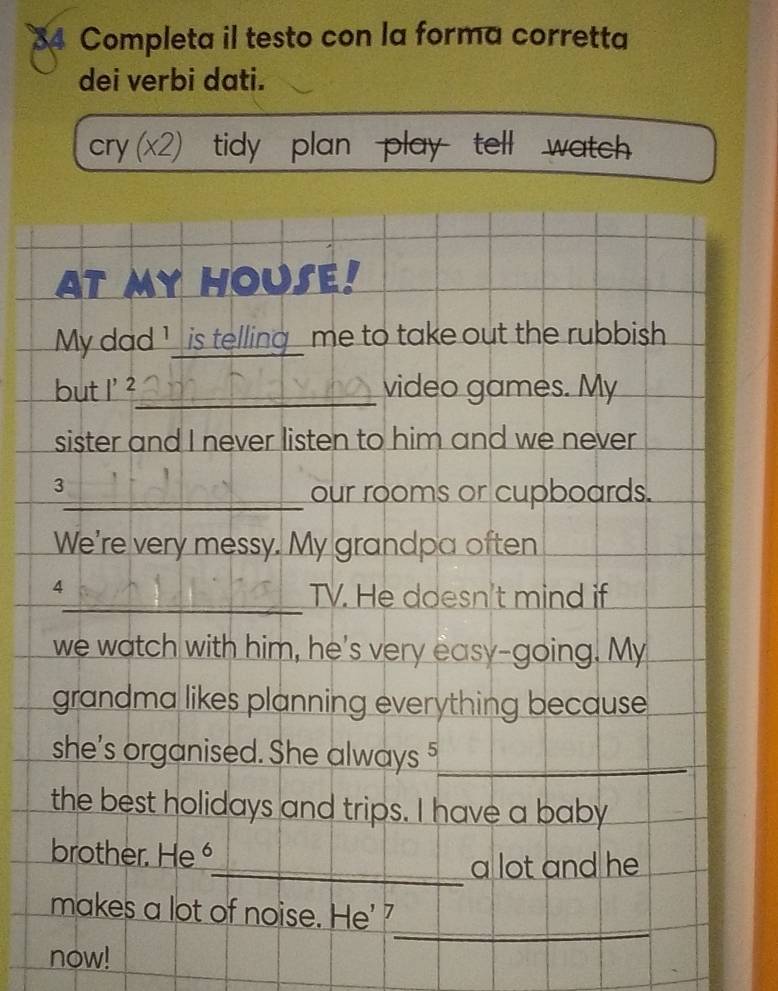 34 Completa il testo con la forma corretta
dei verbi dati.
cry (x2) tidy plan play tell watch
AT MY HOUSE!
My dad ¹ is telling me to take out the rubbish
but I' ² video games. My
sister and I never listen to him and we never
³ our rooms or cupboards.
We're very messy. My grandpa often
⁴ TV. He doesn't mind if
we watch with him, he's very easy-going. My
grandma likes planning everything because
she's organised. She always ⁵
the best holidays and trips. I have a baby
brother. He ⁶ a lot and he
makes a lot of noise. He' ⁷
now!